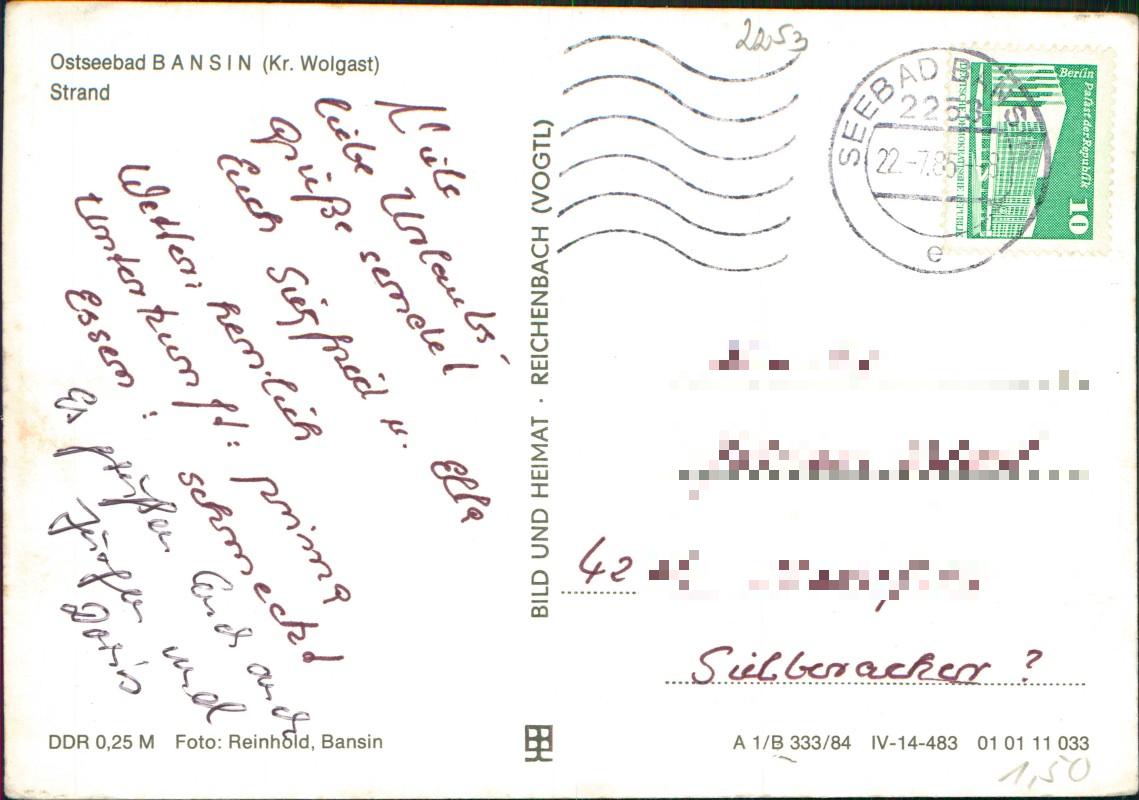 Ostseebad BANSIN (Kr. Wolgast)
Strand
liebe Urlaubs-
Grüße sendet
Euch Siegfried u. Ella
Wetter: herrlich
Unterkunft: prima
Essen: schmeckt
Es grüßen Euch auch
Jürgen und
Doris
DDR 0,25 M Foto: Reinhold, Bansin
BILD UND HEIMAT · REICHENBACH (VOGTL)
2253
SEEBAD BANSIN
2253
22.-7.85
e
Berlin
Palast der Republik
DEUTSCHE DEMOKRATISCHE REPUBLIK
10
42
Silberacker ?
A 1/B 333/84 IV-14-483 01 01 11 033
1,50